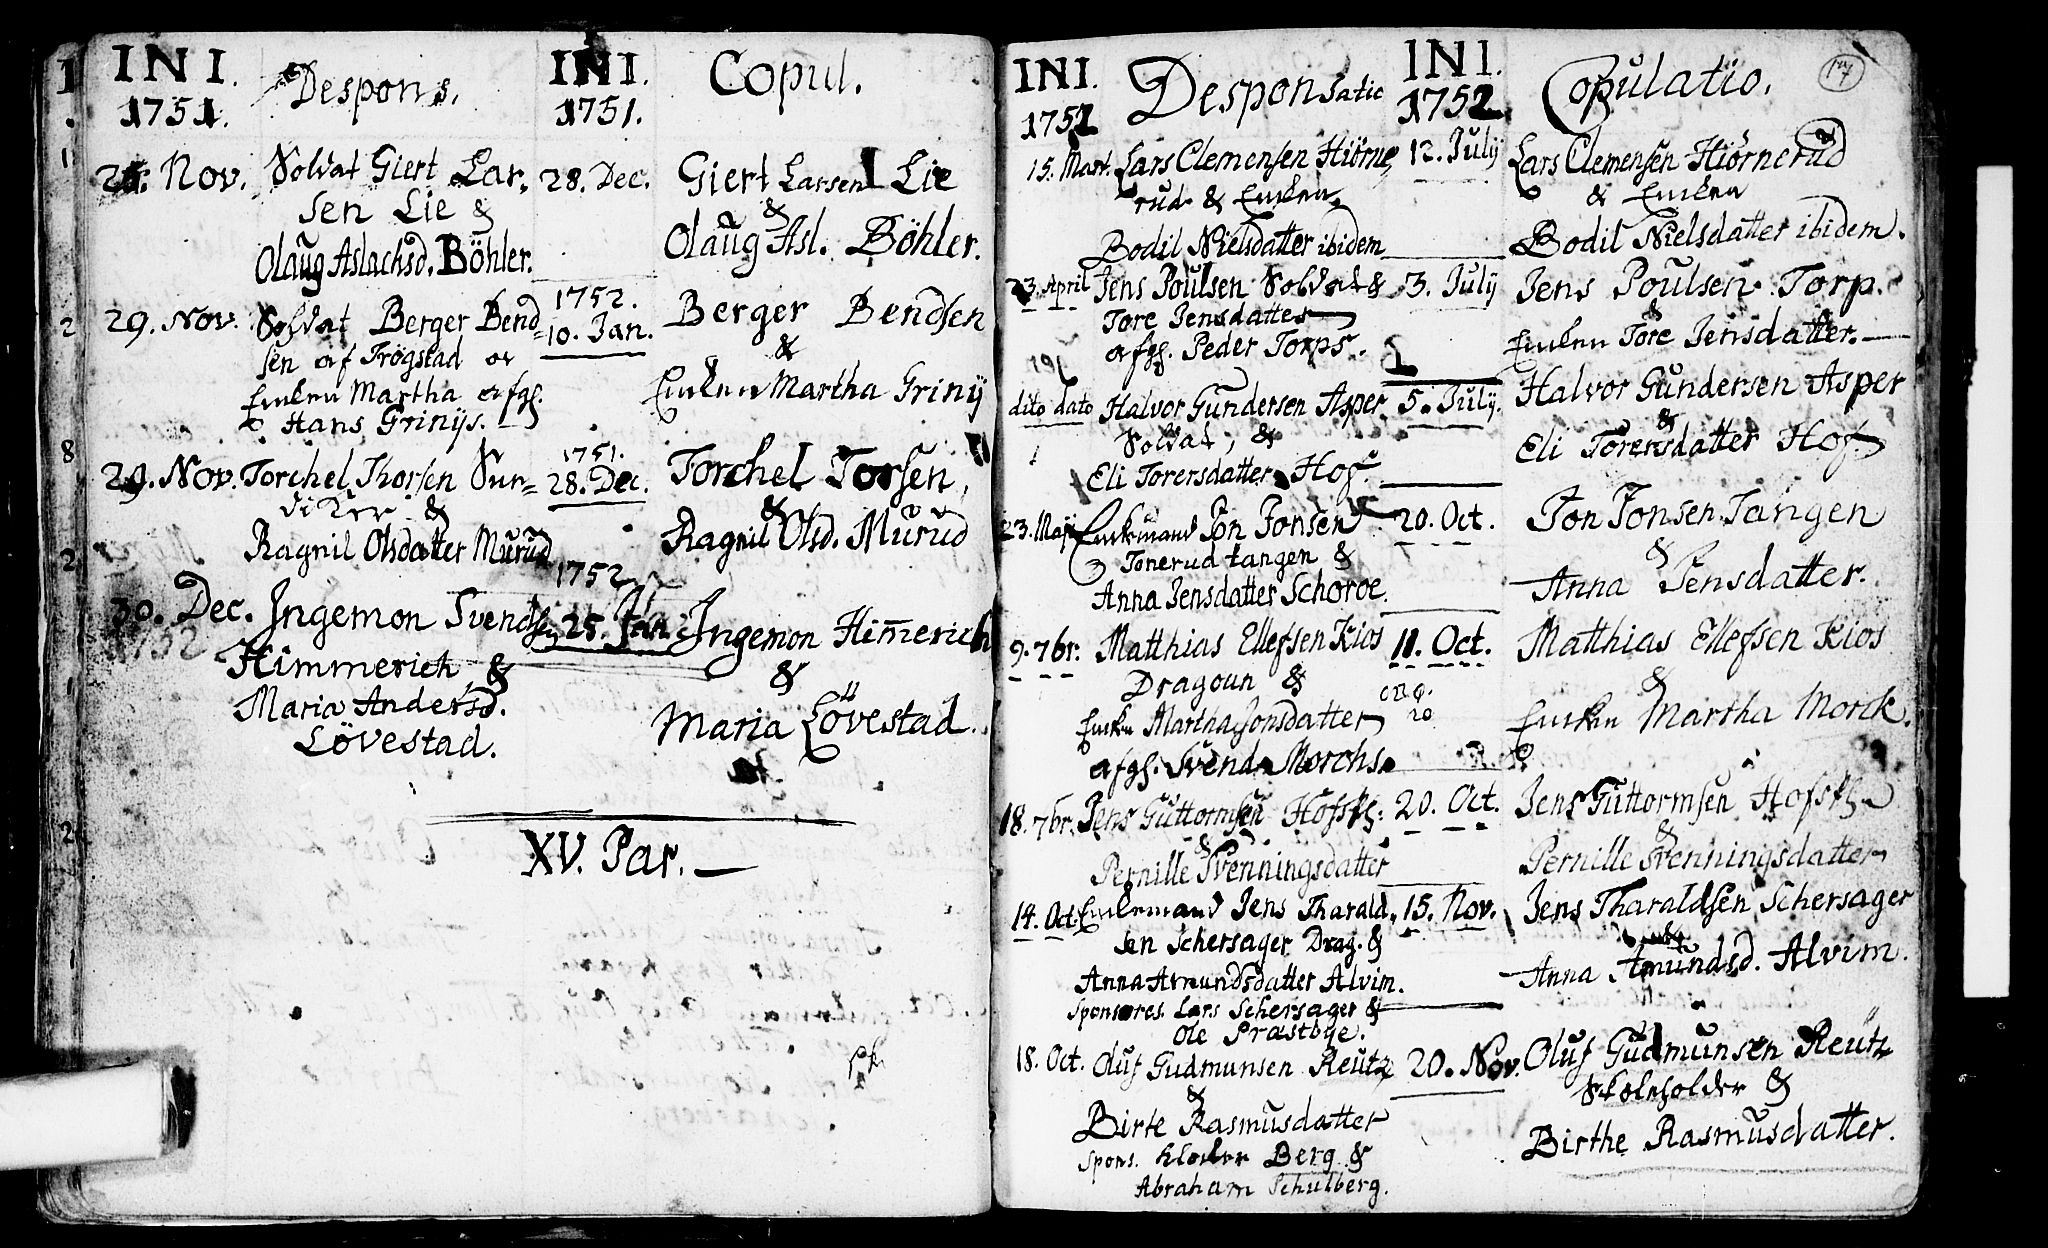 INI.
1751.
Despons.
INI.
1751.
Copul.
Nov. Soldat Giert Lar,
sen Lie &
Olaug Aslachsd. Böhler.
28. Dec.
Giert Larsen Lie
&
Olaug Asl. Böhler.
29. Nov. Soldat Berger Bend=
sen af Trögstad
Enken Martha afgl.
Hans Grinijs.
1752.
10. Jan.
Berger Bendsen
&
Enken Martha Grinij
29. Nov. Torchel Thorsen Sur=
&
Ragnil Olsdatter Murud
1751.
28. Dec.
Torchel Torsen,
&
Ragnil Olsd. Murud
30. Dec. Ingemon Svendsen
1752
Himmerich &
Maria Andersd.
Lövestad.
1752
25. Jan.
Ingemon Him̄erich
&
Maria Lövestad.
XV. Par.
INI.
1752
Desponsatio
INI.
1752
Copulatio.
17
15. Mart. Lars Clemensen Hiörne,
rud & Enken
Bodil Nielsdatter ibidem
12. July
Lars Clemensen Hiörnerud
& Enken
Bodil Nielsdatter ibidem.
23. April Jens Poulsen Soldat &
Tore Jensdatter
afgl. Peder Torps.
3. July
Jens Poulsen Torp.
&
Enken Tore Jensdatter.
dito dato Halvor Gundersen Asper
Soldat, &
Eli Torersdatter Hof.
5. July.
Halvor Gundersen Asper
&
Eli Torersdatter Hof.
23. Maji Enkemand Jon Jonsen
Tonerud tangen &
Anna Jensdatter Schoroe.
20. Oct.
Jon Jonsen Tangen
&
Anna Jensdatter.
9. 7br. Matthias Ellefsen Kios
Dragoun &
Enken Martha Jonsdatter
afgl. Svend Morchs.
11. Oct.
20
Matthias Ellefsen Kios
&
Enken Martha Morck.
18. 7br. Jens Guttormsen
&
Pernille Svenningsdatter
20. Oct.
Jens Guttormsen
&
Pernille Svenningsdatter
14. Oct. Enkemand Jens Tharald,
sen Schersager Drag. &
Anna Amundsdatter Alvim.
Sponsores. Lars Schersager &
Ole Præstbye.
15. Nov.
Jens Tharaldsen Schersager
&
Anna Amundsd. Alvim.
18. Oct. Oluf Gudmunsen Reutz
&
Birte Rasmusdatter
Spons. Klocker Berg &
Abraham Schulberg.
20. Nov.
Oluf Gudmunsen Reutz
Skoleholder &
Birthe Rasmusdatter.